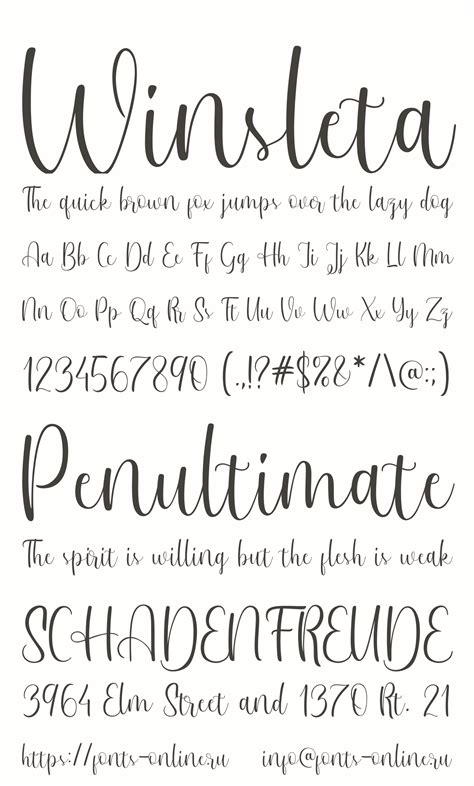 Winsleta
The quick brown fox jumps over the lazy dog
Aa Bb Cc Dd Ee Ff Gg Hh Ii Jj Kk Ll Mm
Nn Oo Pp Qq Rr Ss Tt Uu Vv Ww Xx Yy Zz
1234567890 (.,!?#$%&*/\@:;)
Penultimate
The spirit is willing but the flesh is weak
SCHADENFREUDE
3964 Elm Street and 1370 Rt. 21
https://fonts-online.ru info@fonts-online.ru